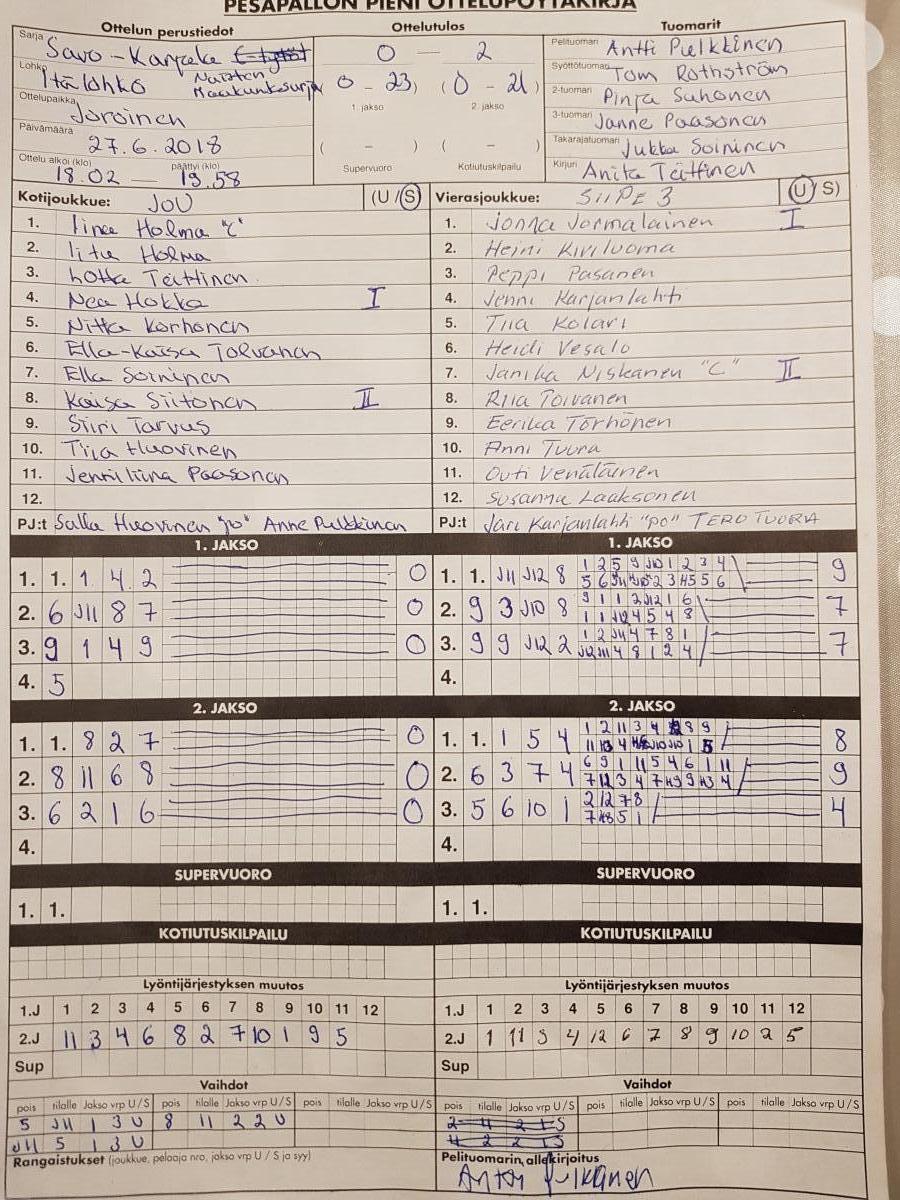 PESÄPALLON PIENI OTTELUPÖYTÄKIRJA
Ottelun perustiedot
Ottelutulos
Tuomarit
Sarja Savo-Karjala
Naisten Maakuntasarja
Lohko Itälohko
Ottelupaikka Joroinen
Päivämäärä 27.6.2018
Ottelu alkoi (klo) päättyi (klo)
18.02 — 19.58
0 — 2
0 - 23) (0 - 21)
1. jakso 2. jakso
( - ) ( - )
Supervuoro Kotiutuskilpailu
Pelituomari Antti Pulkkinen
Syöttötuomari Tom Rothström
2-tuomari Pinja Suhonen
3-tuomari Janne Paasonen
Takarajatuomari Jukka Soininen
Kirjuri Anita Teittinen
Kotijoukkue: JoU (U/S)
1. Iina Holma "C"
2. Iita Holma
3. Lotta Teittinen
4. Nea Hokka I
5. Nitta Korhonen
6. Ella-Kaisa Tolvanen
7. Ella Soininen
8. Kaisa Siitonen II
9. Siiri Tarvus
10. Tiia Huovinen
11. Jenniliina Paasonen
12.
PJ:t Salla Huovinen "po" Anne Pulkkinen
Vierasjoukkue: SiiPe 3 (U/S)
1. Jonna Jormalainen I
2. Heini Kiviluoma
3. Peppi Pasanen
4. Jenni Karjanlahti
5. Tiia Kolari
6. Heidi Vesalo
7. Janika Niskanen "C" II
8. Riia Toivanen
9. Eerika Törhönen
10. Anni Tuura
11. Outi Venäläinen
12. Susanna Laaksonen
PJ:t Jari Karjanlahti "po" TERO TUURA
1. JAKSO
1. 1. 1 4 2 0
2. 6 J11 8 7 0
3. 9 1 4 9 0
4. 5
2. JAKSO
1. 1. 8 2 7 0
2. 8 11 6 8 0
3. 6 2 1 6 0
4.
SUPERVUORO
1. 1.
KOTIUTUSKILPAILU
1. JAKSO
1. 1. J11 J12 8 9
2. 9 3 J10 8 7
3. 9 9 J12 2 7
4.
2. JAKSO
1. 1. 1 5 4 8
2. 6 3 7 4 9
3. 5 6 10 1 4
4.
SUPERVUORO
1. 1.
KOTIUTUSKILPAILU
Lyöntijärjestyksen muutos
1.J 1 2 3 4 5 6 7 8 9 10 11 12
2.J 11 3 4 6 8 2 7 10 1 9 5
Sup
Vaihdot
pois tilalle Jakso vrp U/S pois tilalle Jakso vrp U/S pois tilalle Jakso vrp U/S
5 J11 1 3 U 8 11 2 2 U
J11 5 1 3 U
Rangaistukset (joukkue, pelaaja nro, jakso vrp U / S ja syy)
Lyöntijärjestyksen muutos
1.J 1 2 3 4 5 6 7 8 9 10 11 12
2.J 1 11 3 4 12 6 7 8 9 10 2 5
Sup
Vaihdot
pois tilalle Jakso vrp U/S pois tilalle Jakso vrp U/S pois tilalle Jakso vrp U/S
2 4 2 1 S
4 2 2 1 S
Pelituomarin allekirjoitus
Antti Pulkkinen